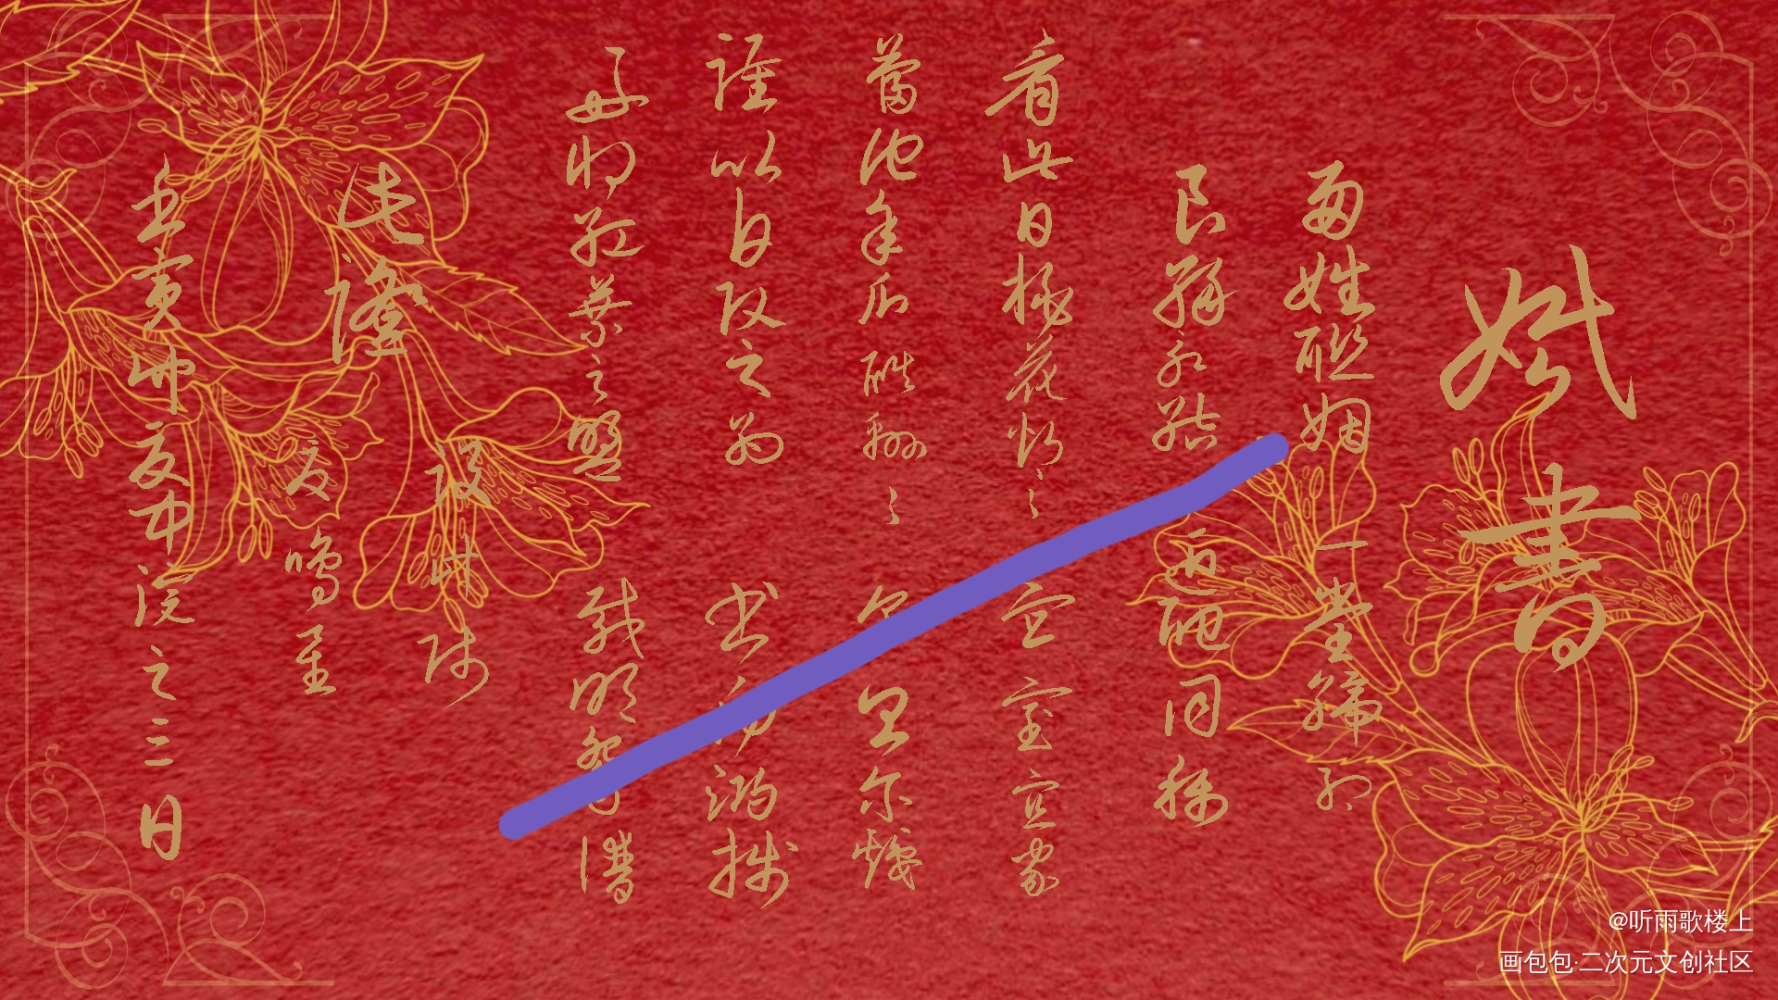 婚書
兩姓聯姻 一堂締約
良緣永結 匹配同稱
看此日桃花灼灼 宜室宜家
當他年瓜瓞綿綿 昌尔熾
謹以白頭之約 書鴻箋
好將紅葉之盟 載明鴛譜
此證
夏鳴星
仲夏中浣之二日
@听雨歌楼上
画包包·二次元文创社区